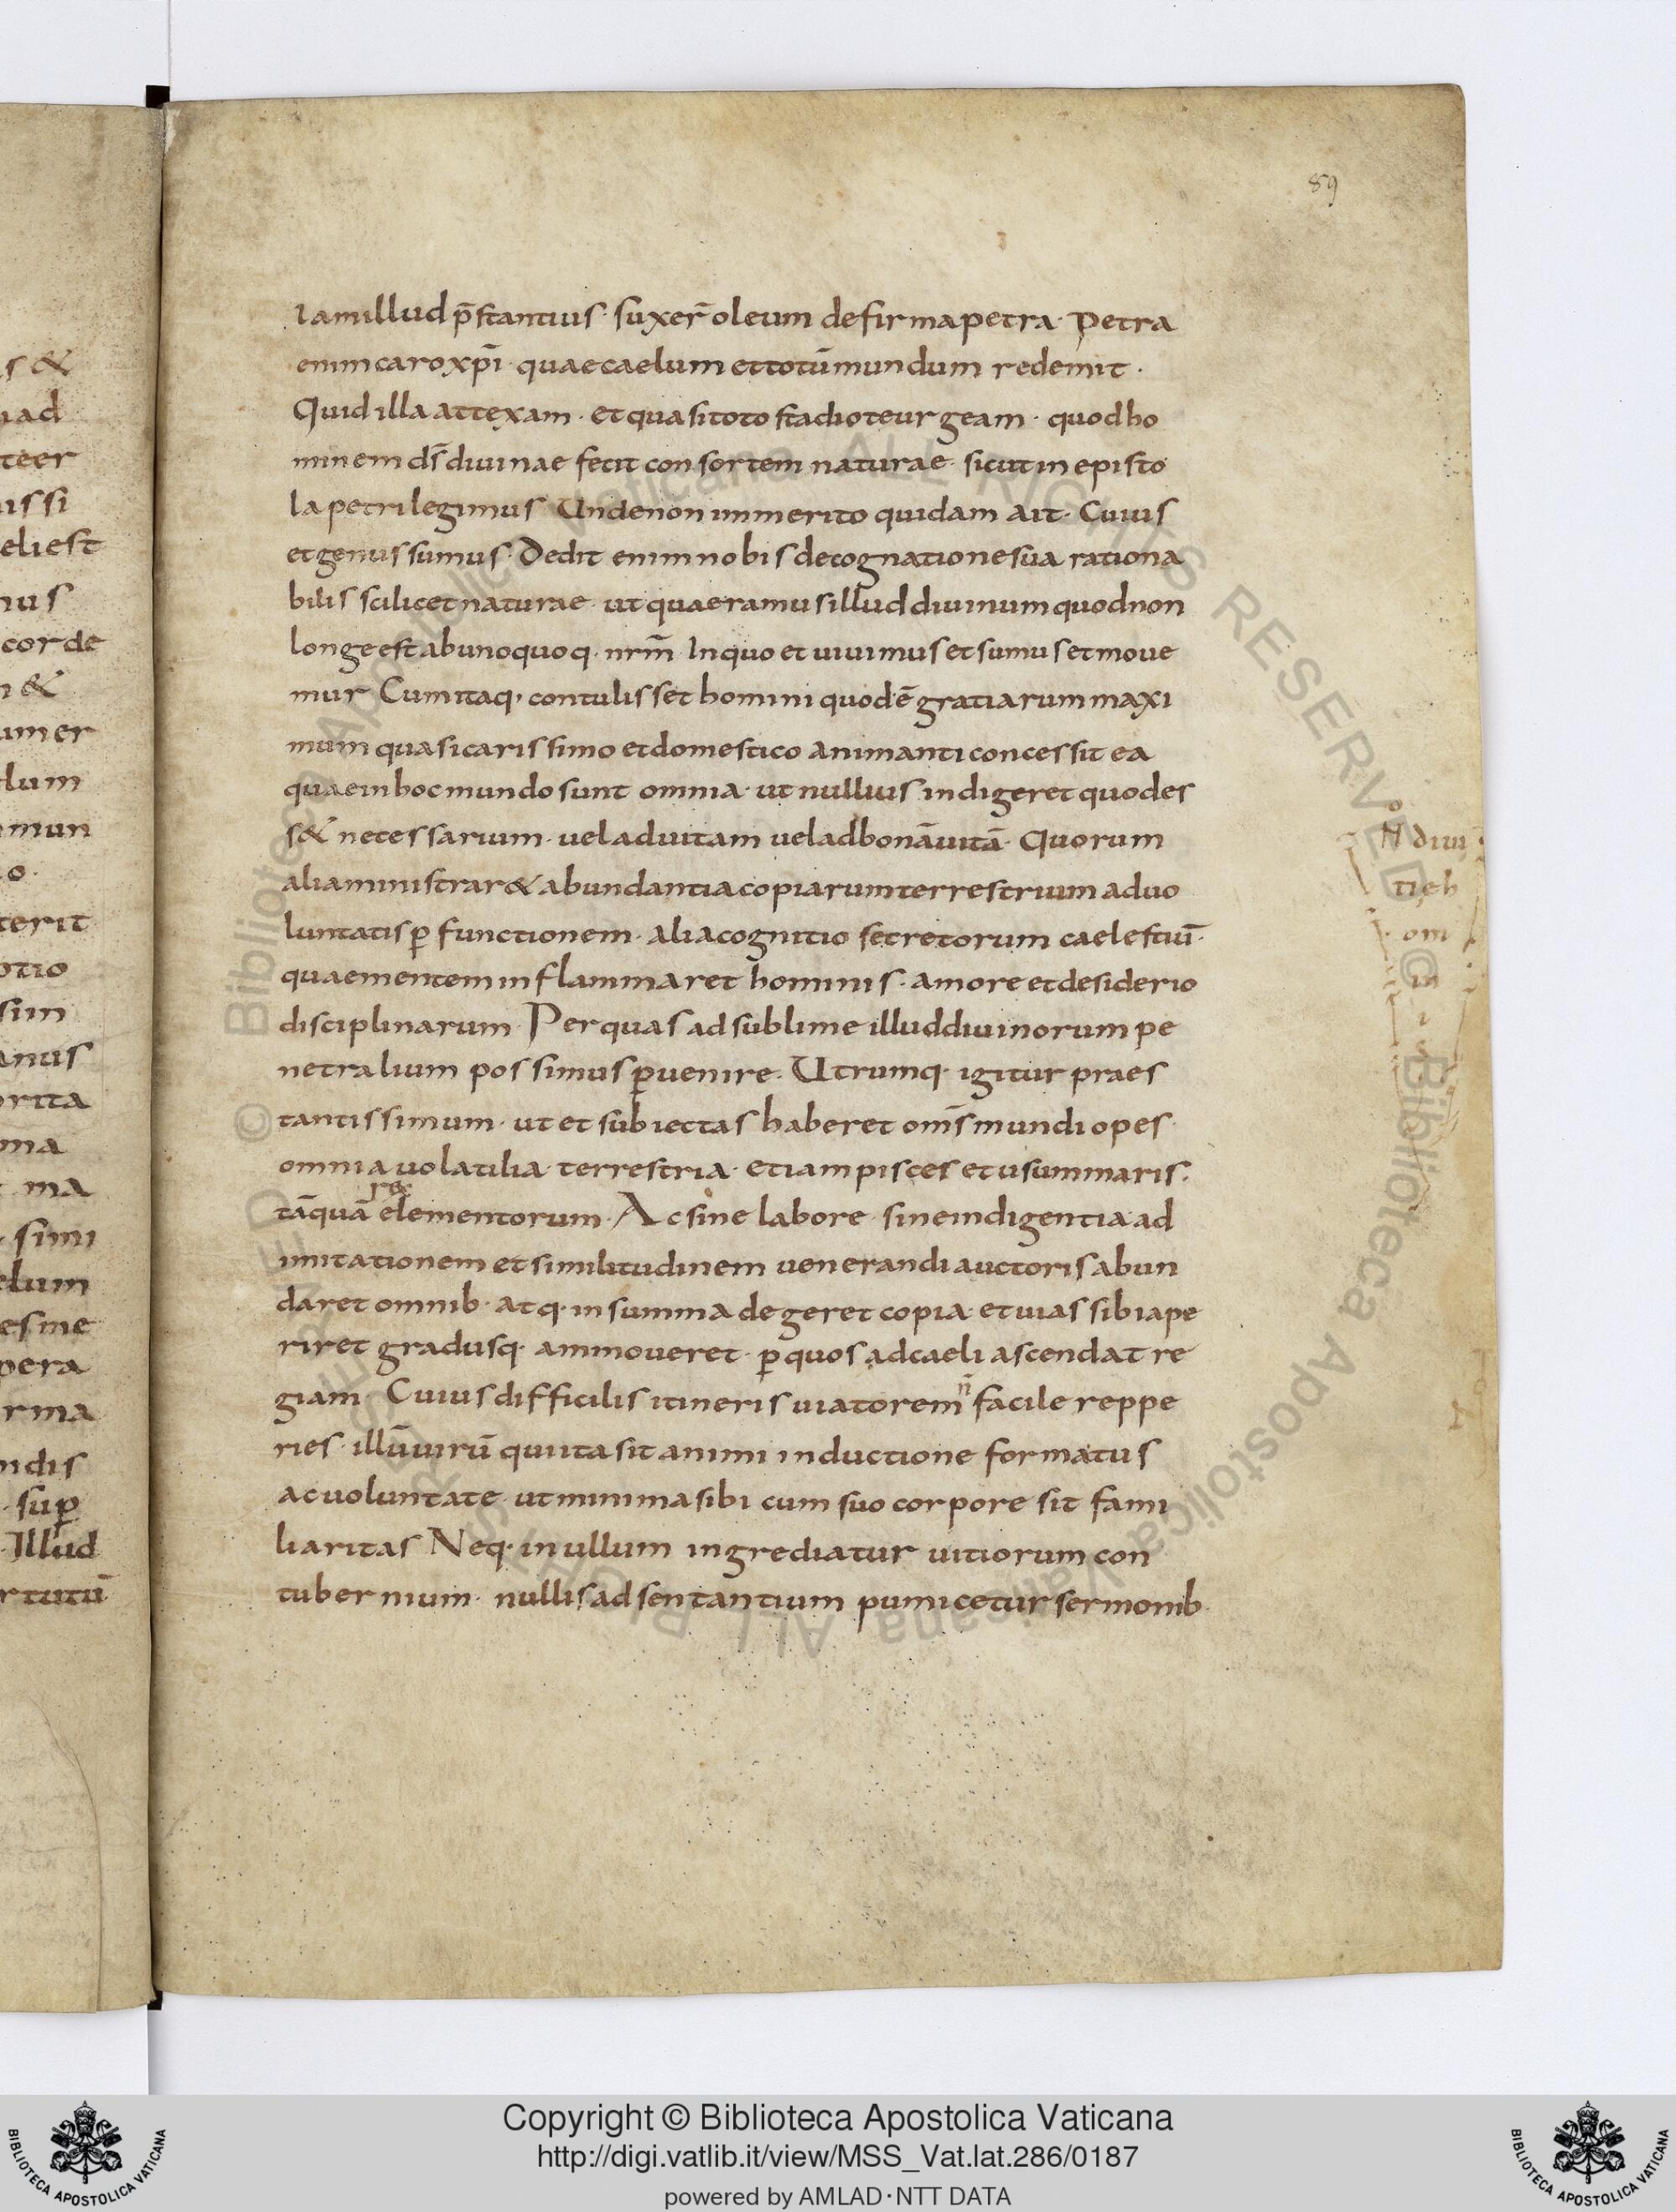 s &
ad
teer
is si
eli est
nus
corde
n &
umer
lum
mun
o.
terit
otio
sim
anus
orita
ma
ma
simi
lum
es me
pera
rma
ndis
sup̱
Illud
rtutū
89
Iam illud p̄stantius · suxer̄ oleum de firma petra · Petra
enim caro xp̄i · quae caelum et totū mundum redemit ·
Quid illa attexam · et quasi toto stadio teurgeam · quod ho
minem d̄s diuinae fecit consortem naturae · sicut in episto
la petri legimus Unde non inmerito quidam ait · Cuius
et genus sumus · Dedit enim nobis de cognatione sua rationa
bilis scilicet naturae · ut quaeramus illud diuinum quod non
longe est ab unoquoq · nrm̄ In quo et uiuimus et sumus et moue
mur Cum itaq · contulisset homini quod ē gratiarum maxi
mum quasi carissimo et domestico animanti concessit ea
quae in hoc mundo sunt omnia · ut nullius indigeret quod es
s& necessarium · uel ad uitam uel ad bonā uitā · Quorum
alia ministrar& abundantia copiarum terrestrium ad uo
luntatis ꝑfunctionem · alia cognitio secretorum caelestiū ·
quae mentem inflammaret hominis · amore et desiderio
disciplinarum · Per quas ad sublime illud diuinorum pe
netralium possimus ꝑuenire · Utrumq · igitur praes
tantissimum · ut et subiectas haberet om̄s mundi opes
omnia uolatilia · terrestria · etiam pisces et usum maris ·
tāquā r& elementorum · Ac sine labore · sine indigentia ad
imitationem et similitudinem uenerandi auctoris abun
daret omnib · atq · in summa degeret copia et uias sibi ape
riret gradusq · ammoueret · ꝑ quos ad caeli ascendat re
giam · Cuius difficilis itineris uiatorem n̄ facile reppe
ries · illū uirū qui ita sit animi inductione formatus
ac uoluntate · ut minima sibi cum suo corpore sit fami
liaritas Neq · in ullum ingrediatur uitiorum con
tubernium · nullis adsentantium pumicetur sermonib ·
© Biblioteca Apostolica Vaticana ALL RIGHTS RESERVED
© Biblioteca Apostolica Vaticana ALL RIGHTS RESERVED
Copyright © Biblioteca Apostolica Vaticana
http://digi.vatlib.it/view/MSS_Vat.lat.286/0187
powered by AMLAD·NTT DATA
BIBLIOTECA APOSTOLICA VATICANA
BIBLIOTECA APOSTOLICA VATICANA